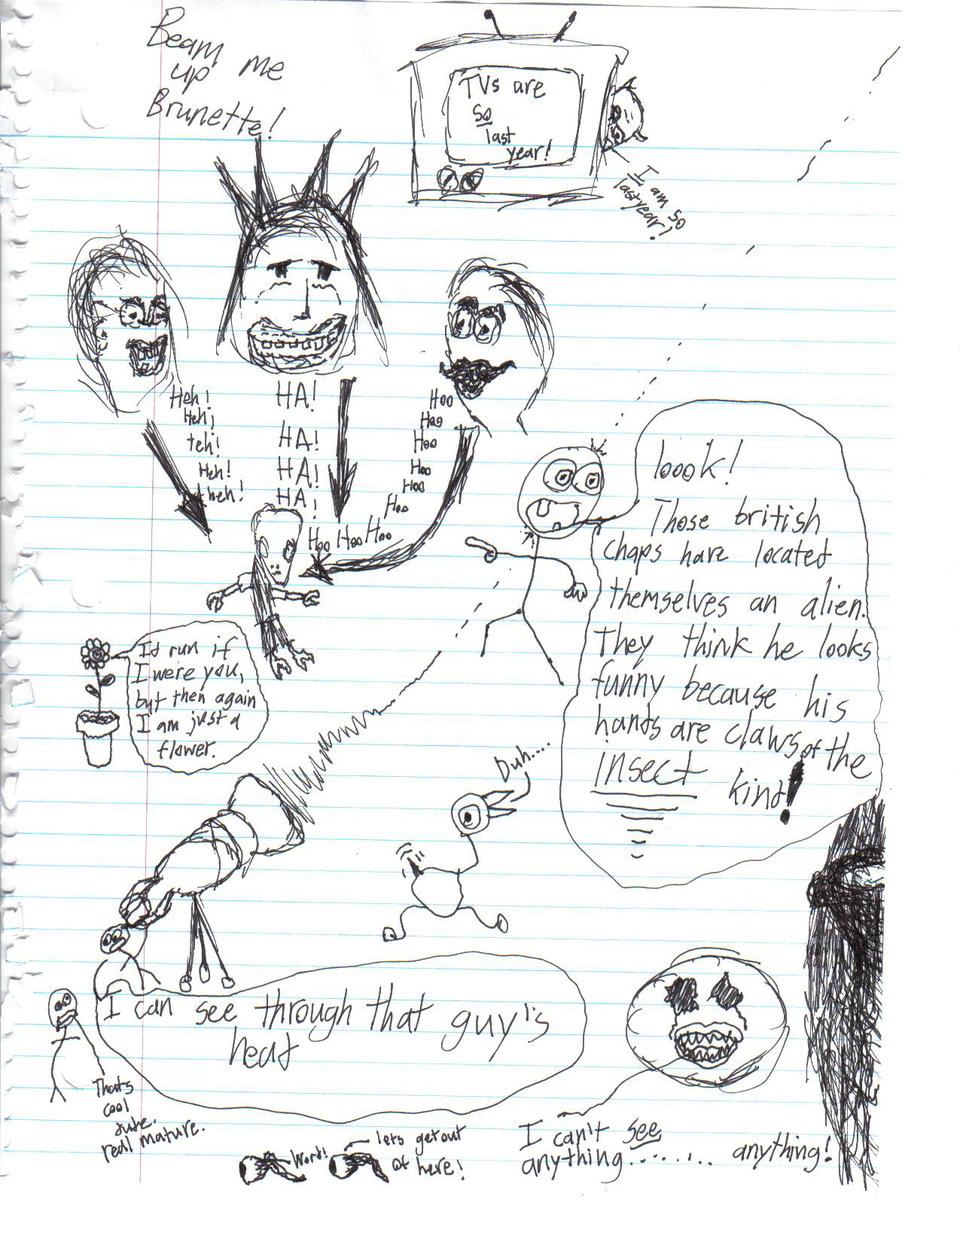 Beam
up me
Brunette!
TVs are
so
last
year!
I am so
last year!
Heh!
Heh!
teh!
Heh!
heh!
HA!
HA!
HA!
HA!
Hoo
Hoo
Hoo
Hoo
Hoo
Hoo
Hoo Hoo Hoo
look!
Those british
chaps have located
themselves an alien.
They think he looks
funny because his
hands are claws of the
insect kind!
I'd run if
I were you,
but then again
I am just a
flower.
Duh....
I can see through that guy's
head
That's
cool
dude.
real mature.
Word!
lets get out
of here!
I can't see
anything........ anything!